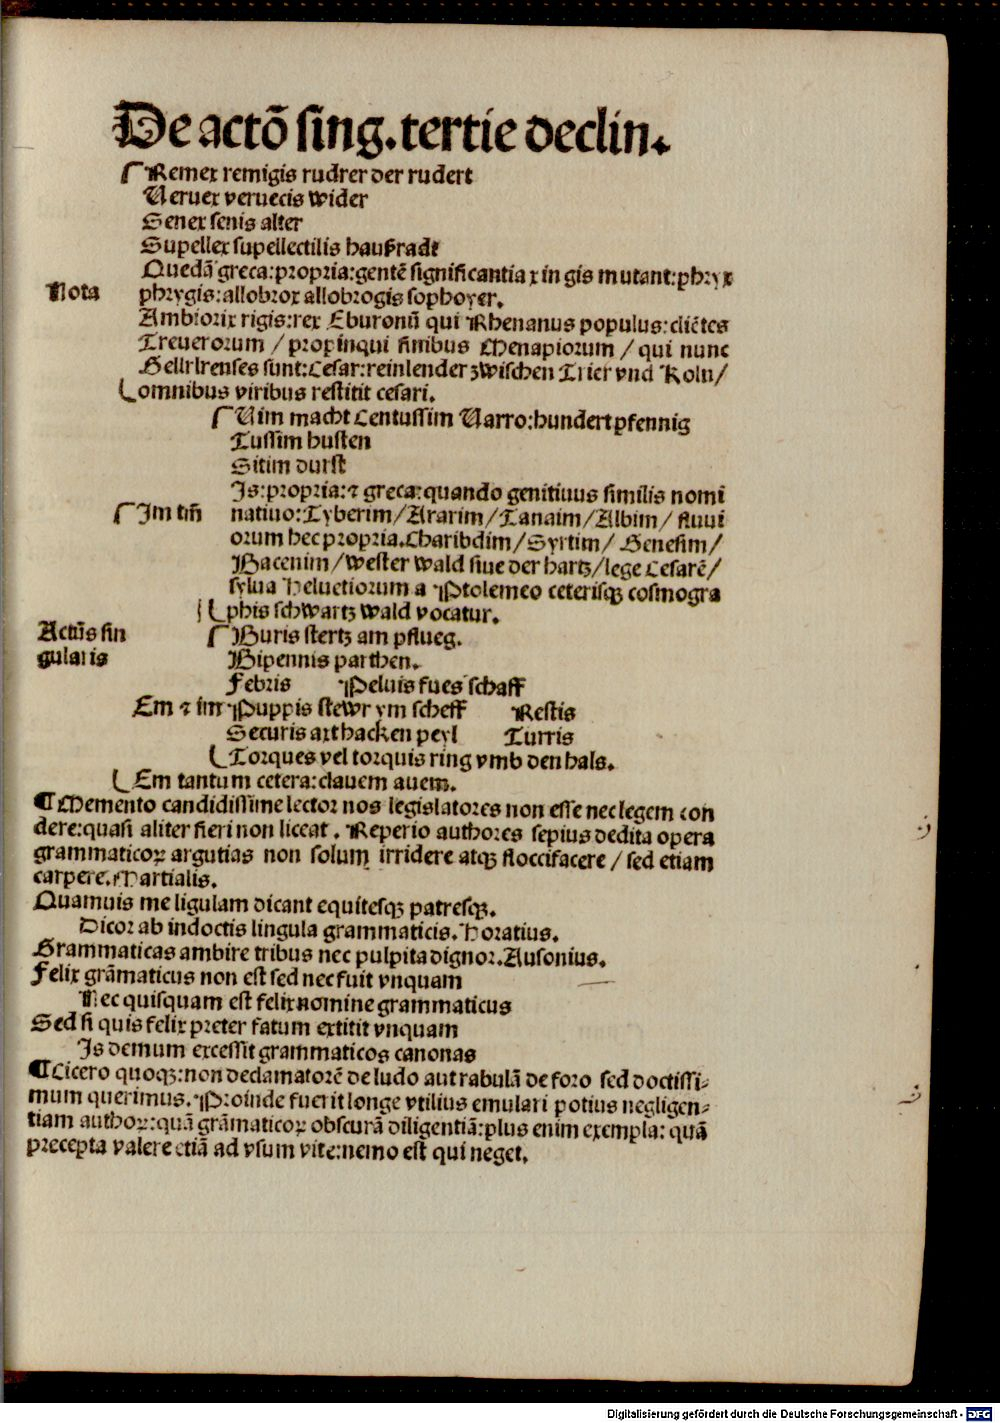 De actō sing. tertie declin.
Remex remigis rudrer der rudert
Ueruex veruecis wider
Senex senis alter
Supellex supellectilis haußradt
Quedā greca: propria: gentē significantia x in gis mutant: phryx
Nota phrygis: allobrox allobrogis sophoyer.
Ambiorix rigis: rex Eburonū qui Rhenanus populus: cliētes
Treuerorum / propinqui finibus Menapiorum / qui nunc
Gellrlrenses sunt: Cesar: reinlender zwischen Trier vnd Koln/
omnibus viribus restitit cesari.
Uim macht Centussim Uarro: hundert pfennig
Tussim husten
Sitim durst
Is: propria: ⁊ greca: quando genitiuus similis nomi
Im tm̄ natiuo: Tyberim/ Ararim/ Tanaim/ Albim/ fluui
orum hec propria. Charibdim/ Syrtim/ Genesim/
Bacenim/ wester wald siue der hartz/ lege Cesarē/
sylua Heluetiorum a Ptolemeo ceterisqꝫ cosmogra
phis schwartz wald vocatur.
Actūs sin Buris stertz am pflueg.
gularis Bipennis parthen.
Febris Peluis fues schaff
Em ⁊ im Puppis stewr ym scheff Restis
Securis axt hacken peyl Turris
Torques vel torquis ring vmb den hals.
Em tantum cetera: clauem auem.
¶ Memento candidissime lector nos legislatores non esse nec legem con
dere: quasi aliter fieri non liceat. Reperio authores sepius dedita opera
grammaticoꝝ argutias non solum irridere atqꝫ floccifacere / sed etiam
carpere. Martialis.
Quamuis me ligulam dicant equitesqꝫ patresqꝫ.
Dicor ab indoctis lingula grammaticis. Horatius.
Grammaticas ambire tribus nec pulpita dignor. Ausonius.
Felix grāmaticus non est sed nec fuit vnquam
Nec quisquam est felix nomine grammaticus
Sed si quis felix preter fatum extitit vnquam
Is demum excessit grammaticos canonas
¶ Cicero quoqꝫ: non declamatorē de ludo aut rabulā de foro sed doctissi-
mum querimus. Proinde fuerit longe vtilius emulari potius negligen-
tiam authoꝝ: quā grāmaticoꝝ obscurā diligentiā: plus enim exempla: quā
precepta valere etiā ad vsum vite: nemo est qui neget.
Digitalisierung gefördert durch die Deutsche Forschungsgemeinschaft - DFG